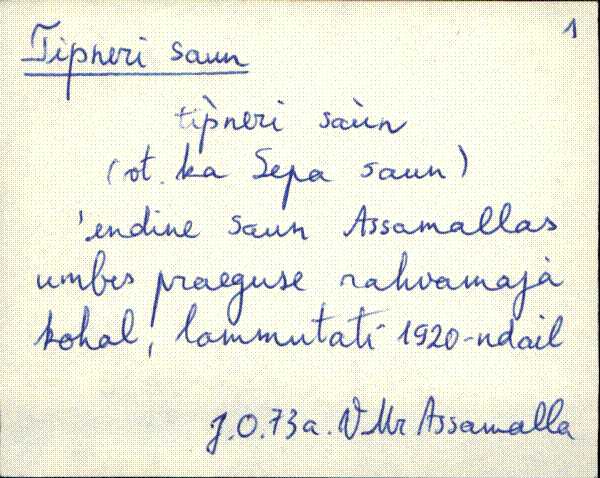 1
Tipneri saun
tìpneri saùn
(vt. ka Sepa saun)
'endine saun Assamallas
umbes praeguse rahvamaja
kohal, lammutati 1920-ndail
J.O.73a. VMr Assamalla